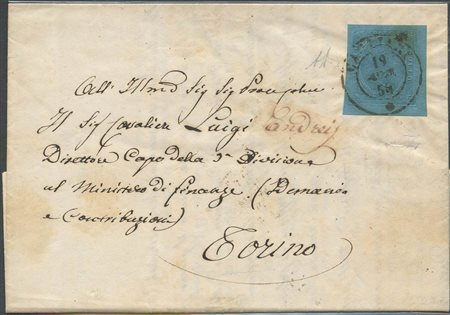 19
All' Illmo Sig Sig
Il Sig Cavaliere Luigi
Direttore Capo della 3a Divisione
al Ministero di finanze (Demanio
e Contribuzioni)
Torino